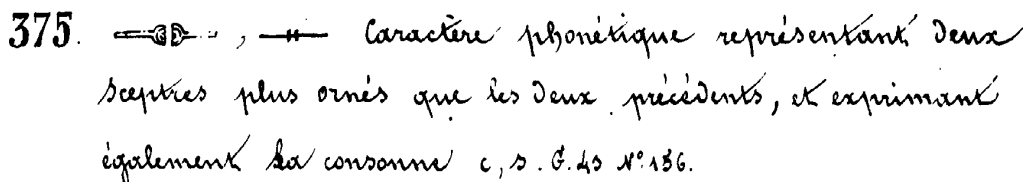 375. , Caractère phonétique représentant deux
sceptres plus ornés que les deux précédents, et exprimant
également la consonne c, s. G. 43 Nº. 136.